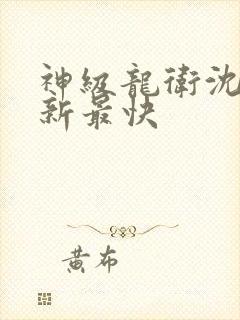 神級龍衛沈
新最快
黃布